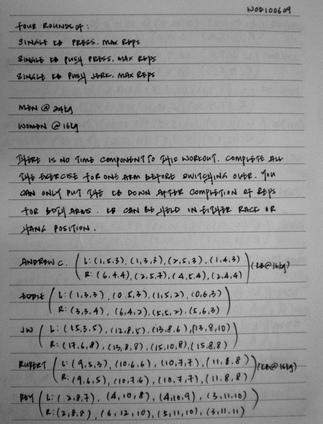 WOD100609
FOUR ROUNDS OF:
SINGLE KB PRESS, MAX REPS
SINGLE KB PUSH PRESS, MAX REPS
SINGLE KB PUSH JERK, MAX REPS
MEN @ 24kg
WOMEN @ 16kg
THERE IS NO TIME COMPONENT TO THIS WORKOUT. COMPLETE ALL
THE EXERCISE FOR ONE ARM BEFORE SWITCHING OVER. YOU
CAN ONLY PUT THE KB DOWN AFTER COMPLETION OF REPS
FOR BOTH ARMS. KB CAN BE HELD IN EITHER RACK OR
HANG POSITION.
ANDREW C. L: (1,5,3), (1,3,3), (2,5,3), (1,4,3)
R: (6,4,4), (2,5,7), (4,5,4), (2,4,4) (KB@16kg)
L: (1,3,3), (0,5,3), (1,5,2), (0,6,3)
R: (3,3,4), (6,4,2), (5,5,2), (5,6,3)
JW L: (15,3,5), (12,8,5), (13,8,6), (13,8,10)
R: (17,6,8), (13,8,8), (15,10,8), (15,8,8)
RUPERT L: (9,5,3), (10,6,6), (10,7,7), (11,8,8)
R: (9,6,5), (10,7,6), (10,7,7), (11,8,8) (KB@16kg)
ROY L: (2,8,7), (4,10,8), (4,10,9), (3,11,10)
R: (2,8,8), (6,12,10), (5,11,10), (3,11,11)